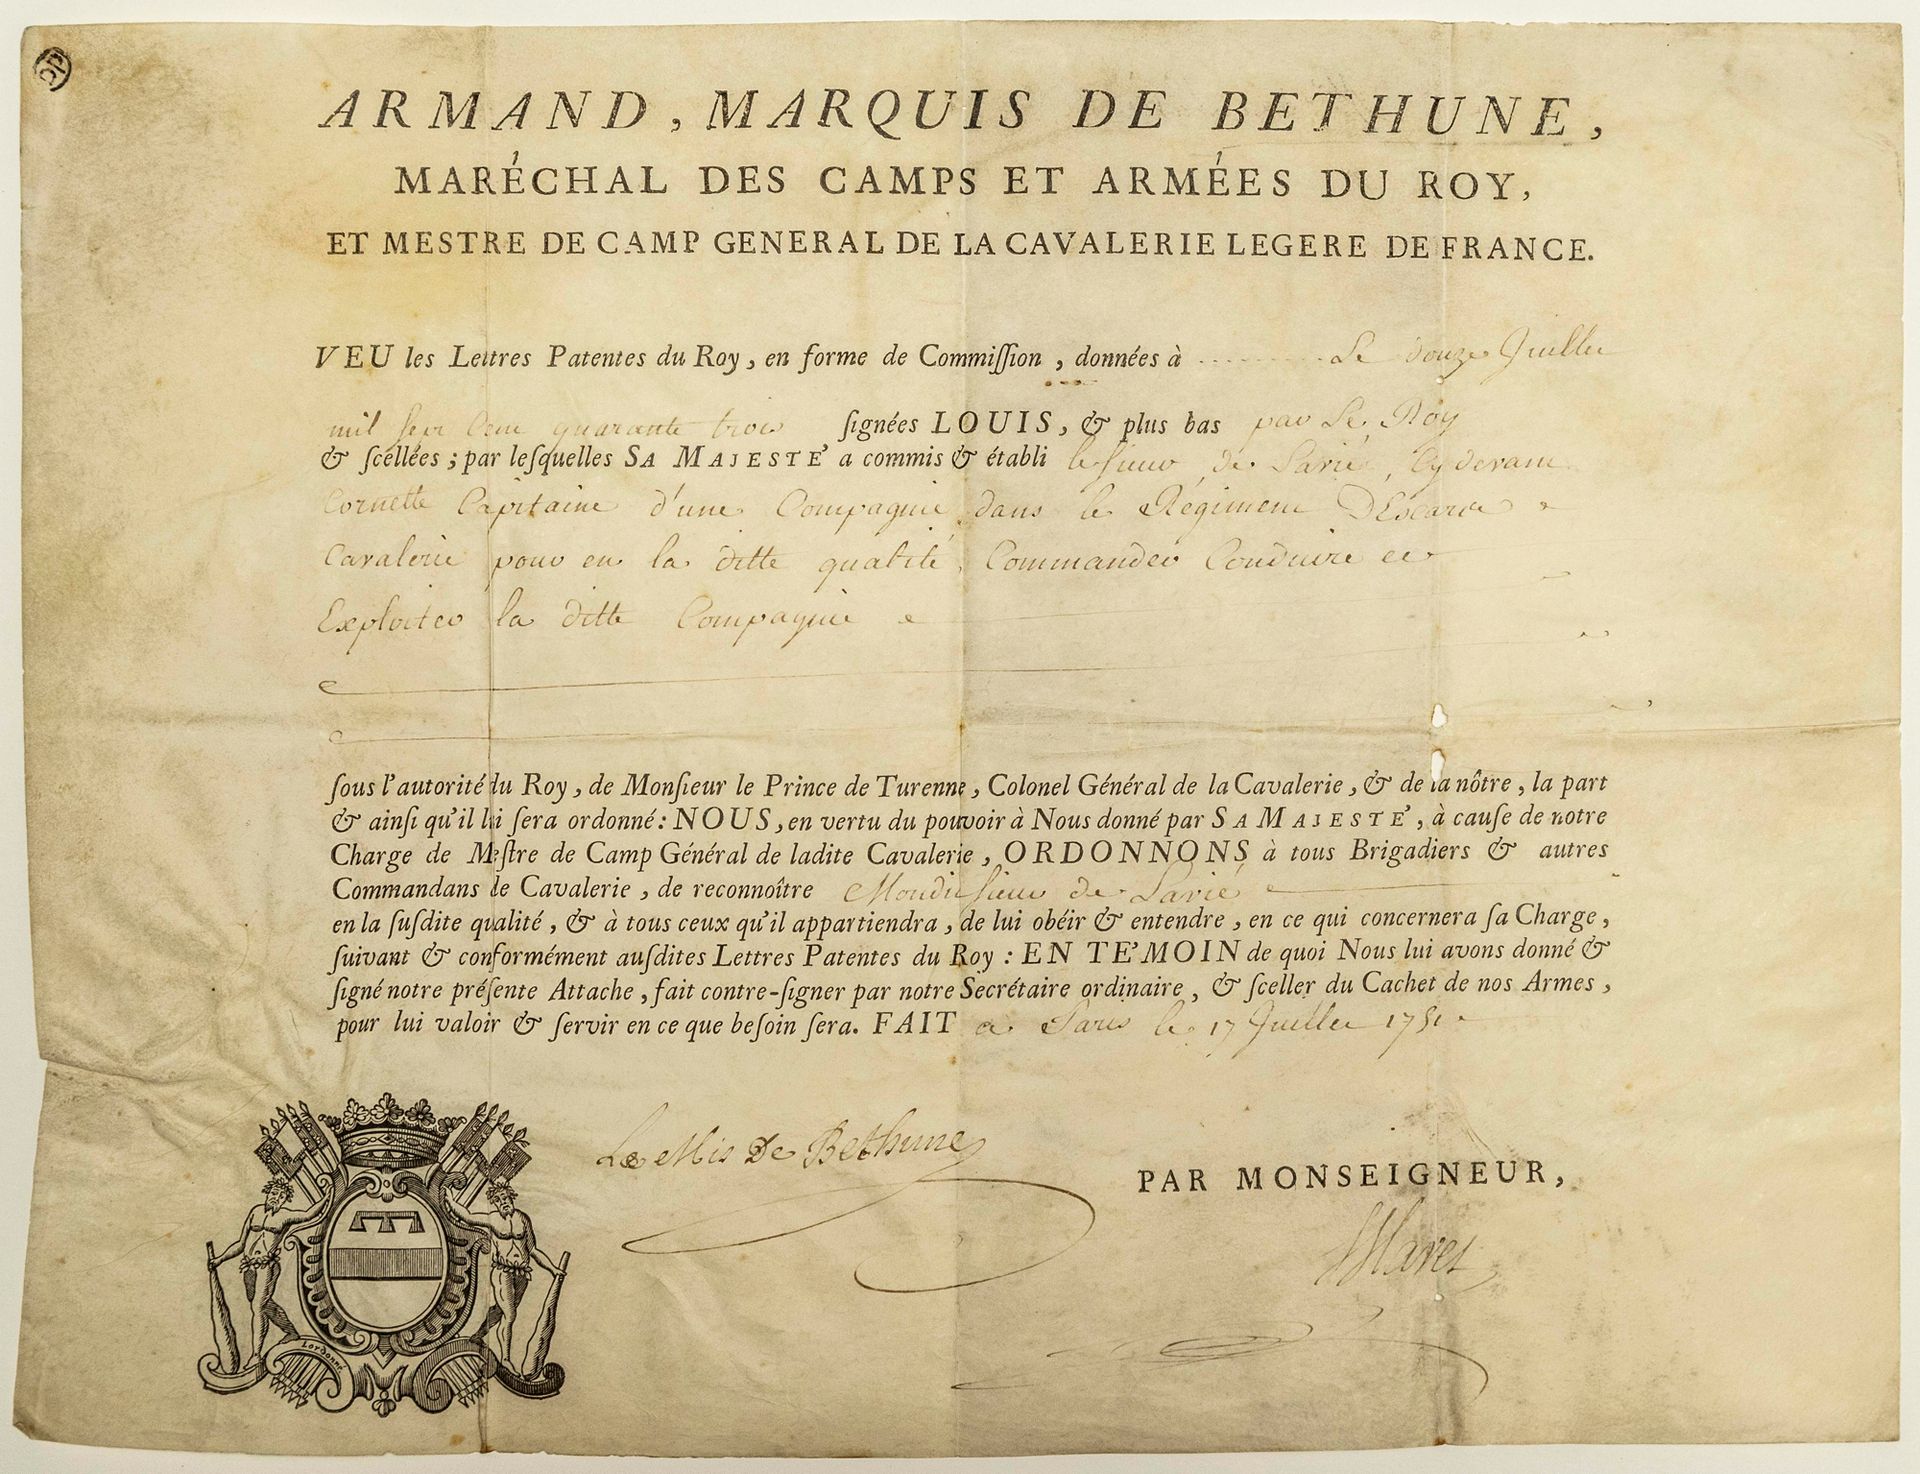 ARMAND, MARQUIS DE BETHUNE,
MARÉCHAL DES CAMPS ET ARMÉES DU ROY,
ET MESTRE DE CAMP GENERAL DE LA CAVALERIE LEGERE DE FRANCE.
VEU les Lettres Patentes du Roy, en forme de Commiſſion, données à Le douze Juillet
mil sept Cent quarante trois ſignées LOUIS, & plus bas par Le Roy
& ſcellées; par leſquelles SA MAJESTE' a commis & établi le sieur de Larié, Cy devant
Cornette Capitaine d'une Compagnie dans le Régiment
Cavalerie pour en la ditte qualité, Commander Conduire et
Exploiter la ditte Compagnie
ſous l'autorité du Roy, de Monſieur le Prince de Turenne, Colonel Général de la Cavalerie, & de la nôtre, la part
& ainſi qu'il lui ſera ordonné: NOUS, en vertu du pouvoir à Nous donné par SA MAJESTE', à cauſe de notre
Charge de Meſtre de Camp Général de ladite Cavalerie, ORDONNONS à tous Brigadiers & autres
Commandans de Cavalerie, de reconnoître Mondit sieur de Larié
en la ſuſdite qualité, & à tous ceux qu'il appartiendra, de lui obéir & entendre, en ce qui concernera ſa Charge,
ſuivant & conformément auſdites Lettres Patentes du Roy: EN TE'MOIN de quoi Nous lui avons donné &
ſigné notre préſente Attache, fait contre-ſigner par notre Secrétaire ordinaire, & ſceller du Cachet de nos Armes,
pour lui valoir & ſervir en ce que beſoin ſera. FAIT a Paris le 17 Juillet 1751
Le Mis De Bethune
PAR MONSEIGNEUR,
Lordonné